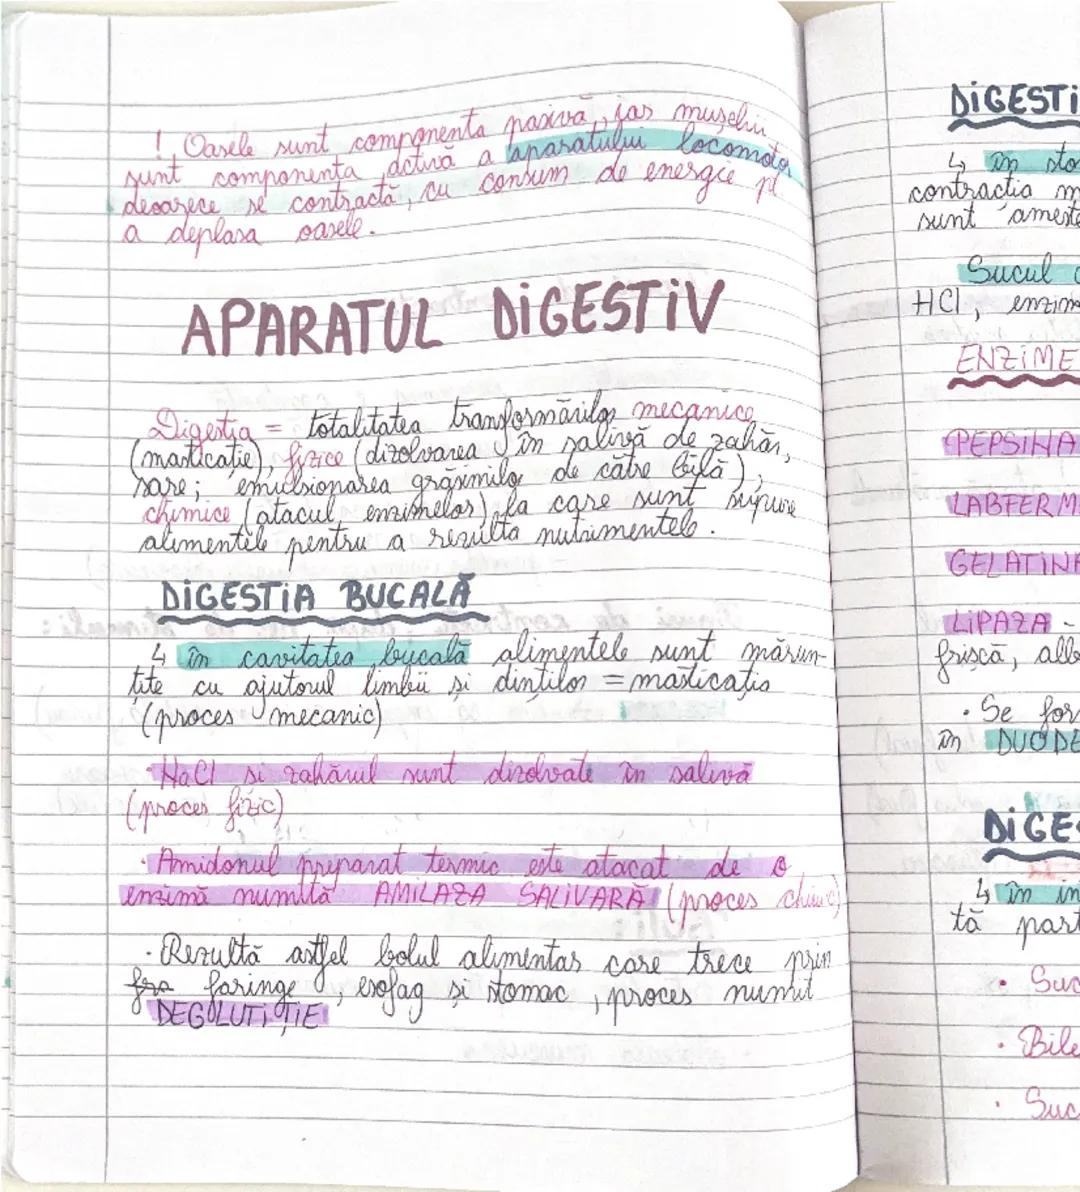 ! Oasele sunt componenta pasivă, iar mușchii
sunt componenta activă a aparatului locomotor,
deoarece se contractă, cu consum de energie pt
a deplasa oasele.
APARATUL DIGESTIV
Digestia = totalitatea transformărilor mecanice
(masticație), fizice (dizolvarea în salivă de zahăr,
sare; emulsionarea grăsimilor de către bilă),
chimice (atacul enzimelor) la care sunt supuse
alimentele pentru a rezulta nutrimentele.
DIGESTIA BUCALĂ
↳ în cavitatea bucală alimentele sunt mărun-
țite cu ajutorul limbii și dinților = masticația
(proces mecanic)
· NaCl și zahărul sunt dizolvate în salivă
(proces fizic)
· Amidonul preparat termic este atacat de o
enzimă numită AMILAZA SALIVARĂ (proces chimic)
· Rezultă astfel bolul alimentar care trece prin
faringe, esofag și stomac, proces numit
DEGLUTIȚIE
DIGESTI
↳ în sto
contracția m
sunt ameste
Sucul
HCl, enzim
ENZIME
PEPSINA
LABFERM
GELATINA
LIPAZA -
frișcă, albu
· Se for
în DUODE
DIGES
↳ în in
tă part
· Suc
· Bile
· Suc